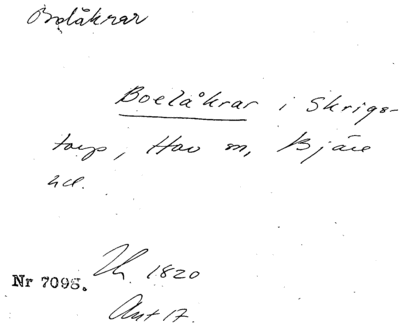 Bolåkrar
Boelåkrar i Skrigs-
torp, Hov sn, Bjäre
hd.
Nr 7095. Lh. 1820
Akt 17.